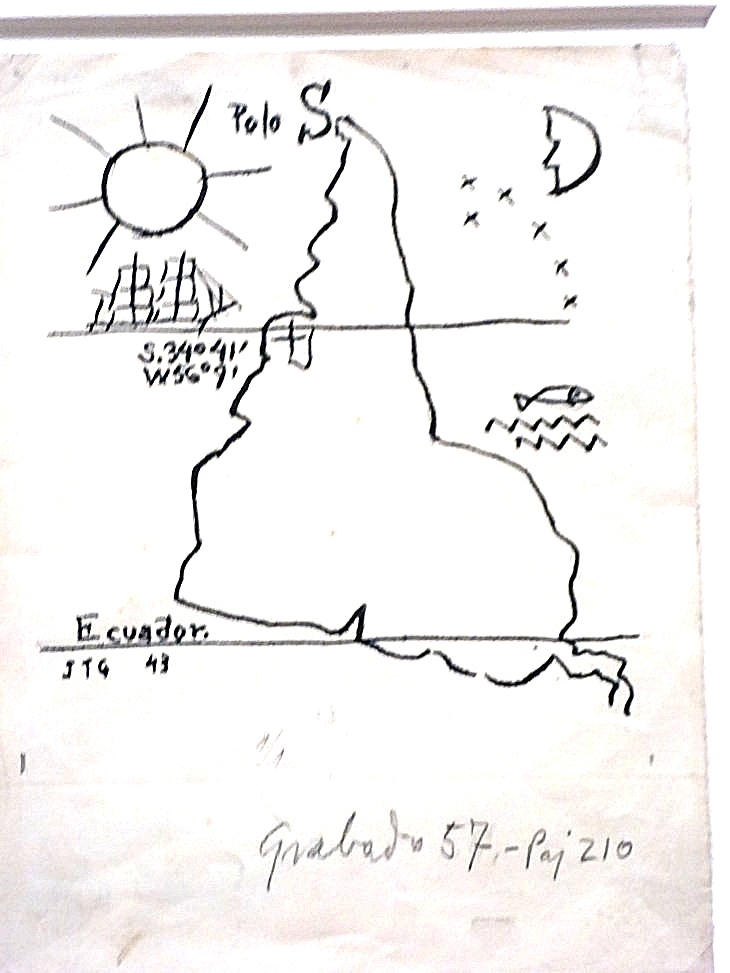 Polo S.
S. 34° 41'
W 56° 9'
Ecuador.
JTG 43
1/1
Grabado 57.-Paj 210